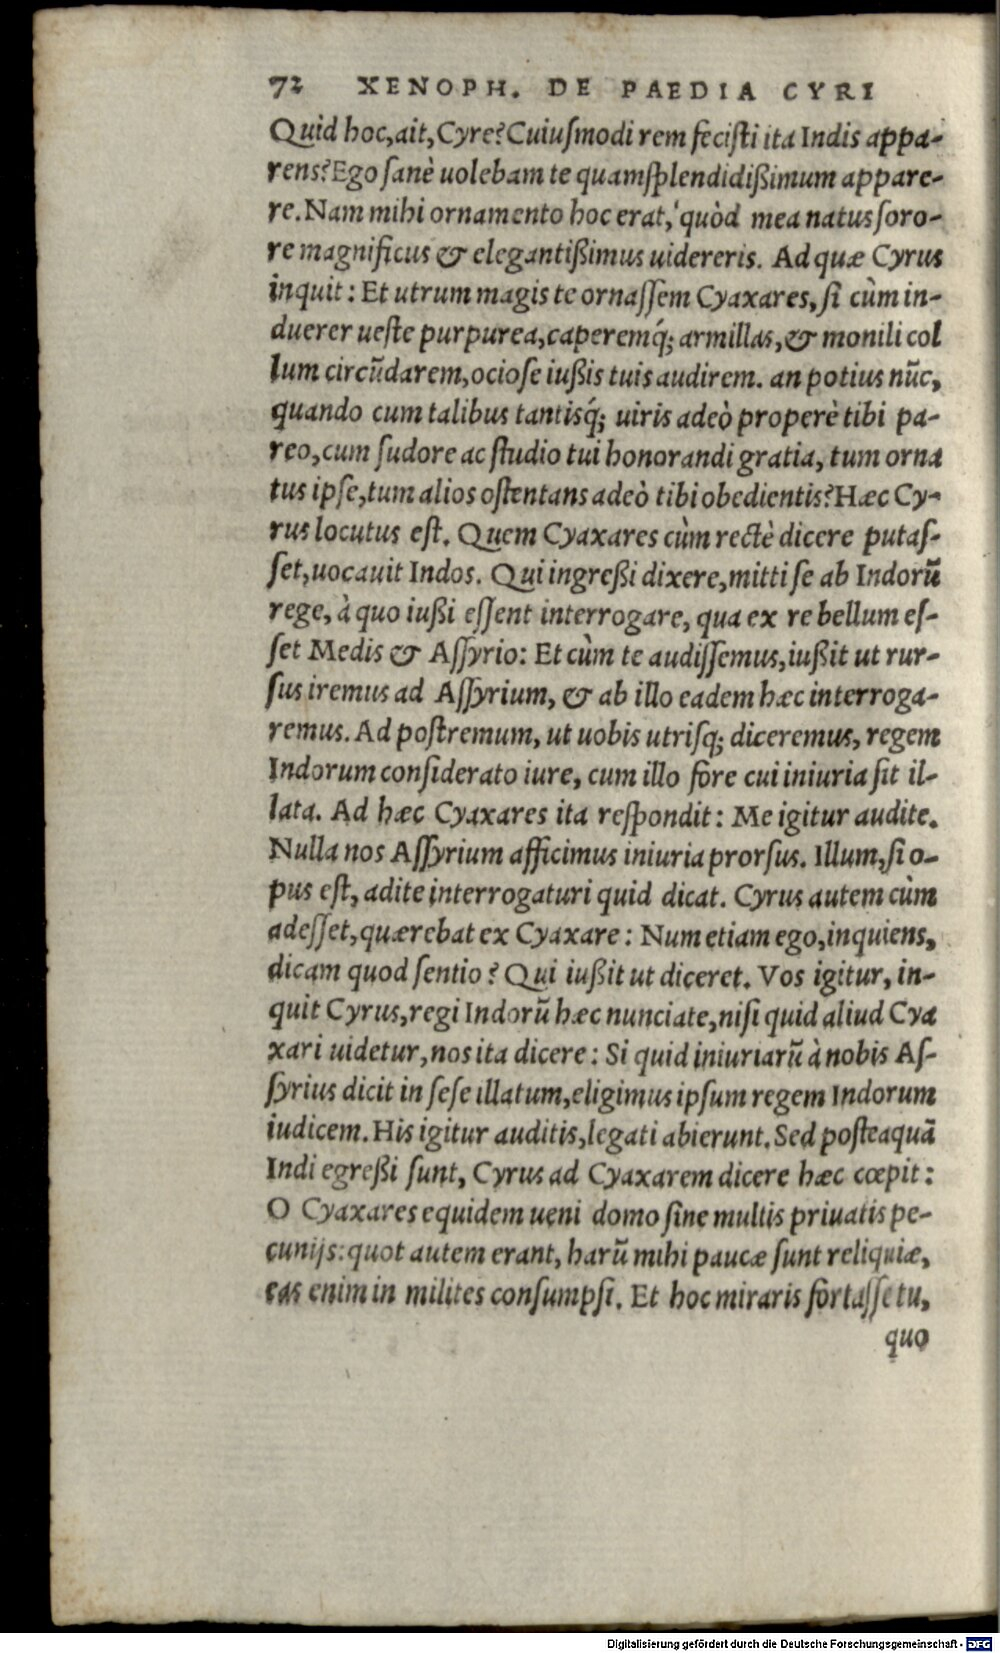 72 XENOPH. DE PAEDIA CYRI
Quid hoc,ait,Cyre?Cuiuſmodi rem feciſti ita Indis appa-
rens?Ego ſanè uolebam te quamſplendidißimum appare-
re.Nam mihi ornamento hoc erat,'quòd mea natus ſoro-
re magnificus & elegantißimus uidereris. Ad quæ Cyrus
inquit: Et utrum magis te ornaſſem Cyaxares, ſi cùm in-
duerer ueſte purpurea,caperemq́; armillas,& monili col
lum circũdarem,ocioſe iußis tuis audirem. an potius nũc,
quando cum talibus tantisq́; uiris adeò properè tibi pa-
reo,cum ſudore ac ſtudio tui honorandi gratia, tum orna
tus ipſe,tum alios oſtentans adeò tibi obedientis?Hæc Cy-
rus locutus eſt. Quem Cyaxares cùm rectè dicere putaſ-
ſet,uocauit Indos. Qui ingreßi dixere,mitti ſe ab Indorũ
rege, à quo iußi eſſent interrogare, qua ex re bellum eſ-
ſet Medis & Aſſyrio: Et cùm te audiſſemus,iußit ut rur-
ſus iremus ad Aſſyrium, & ab illo eadem hæc interroga-
remus. Ad poſtremum, ut uobis utriſq; diceremus, regem
Indorum conſiderato iure, cum illo fore cui iniuria ſit il-
lata. Ad hæc Cyaxares ita reſpondit: Me igitur audite.
Nulla nos Aſſyrium afficimus iniuria prorſus. Illum,ſi o-
pus eſt, adite interrogaturi quid dicat. Cyrus autem cùm
adeſſet,quærebat ex Cyaxare: Num etiam ego,inquiens,
dicam quod ſentio? Qui iußit ut diceret. Vos igitur, in-
quit Cyrus,regi Indorũ hæc nunciate,niſi quid aliud Cya
xari uidetur,nos ita dicere: Si quid iniuriarũ à nobis Aſ-
ſyrius dicit in ſeſe illatum,eligimus ipſum regem Indorum
iudicem.His igitur auditis,legati abierunt.Sed poſteaquã
Indi egreßi ſunt, Cyrus ad Cyaxarem dicere hæc cœpit:
O Cyaxares equidem ueni domo ſine multis priuatis pe-
cunijs:quot autem erant, harũ mihi paucæ ſunt reliquiæ,
eas enim in milites conſumpſi. Et hoc miraris fortaſſe tu,
quo
Digitalisierung gefördert durch die Deutsche Forschungsgemeinschaft - DFG